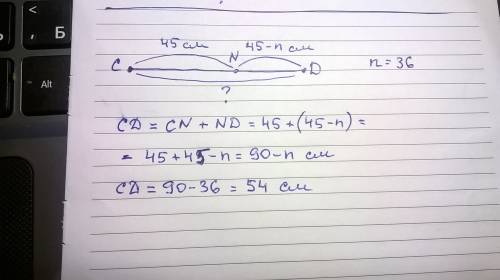 < , Б
Alt
45 см 45-n см
C N D n = 36
?
CD = CN + ND = 45 + (45-n) =
= 45 + 45 - n = 90 - n см
CD = 90 - 36 = 54 см